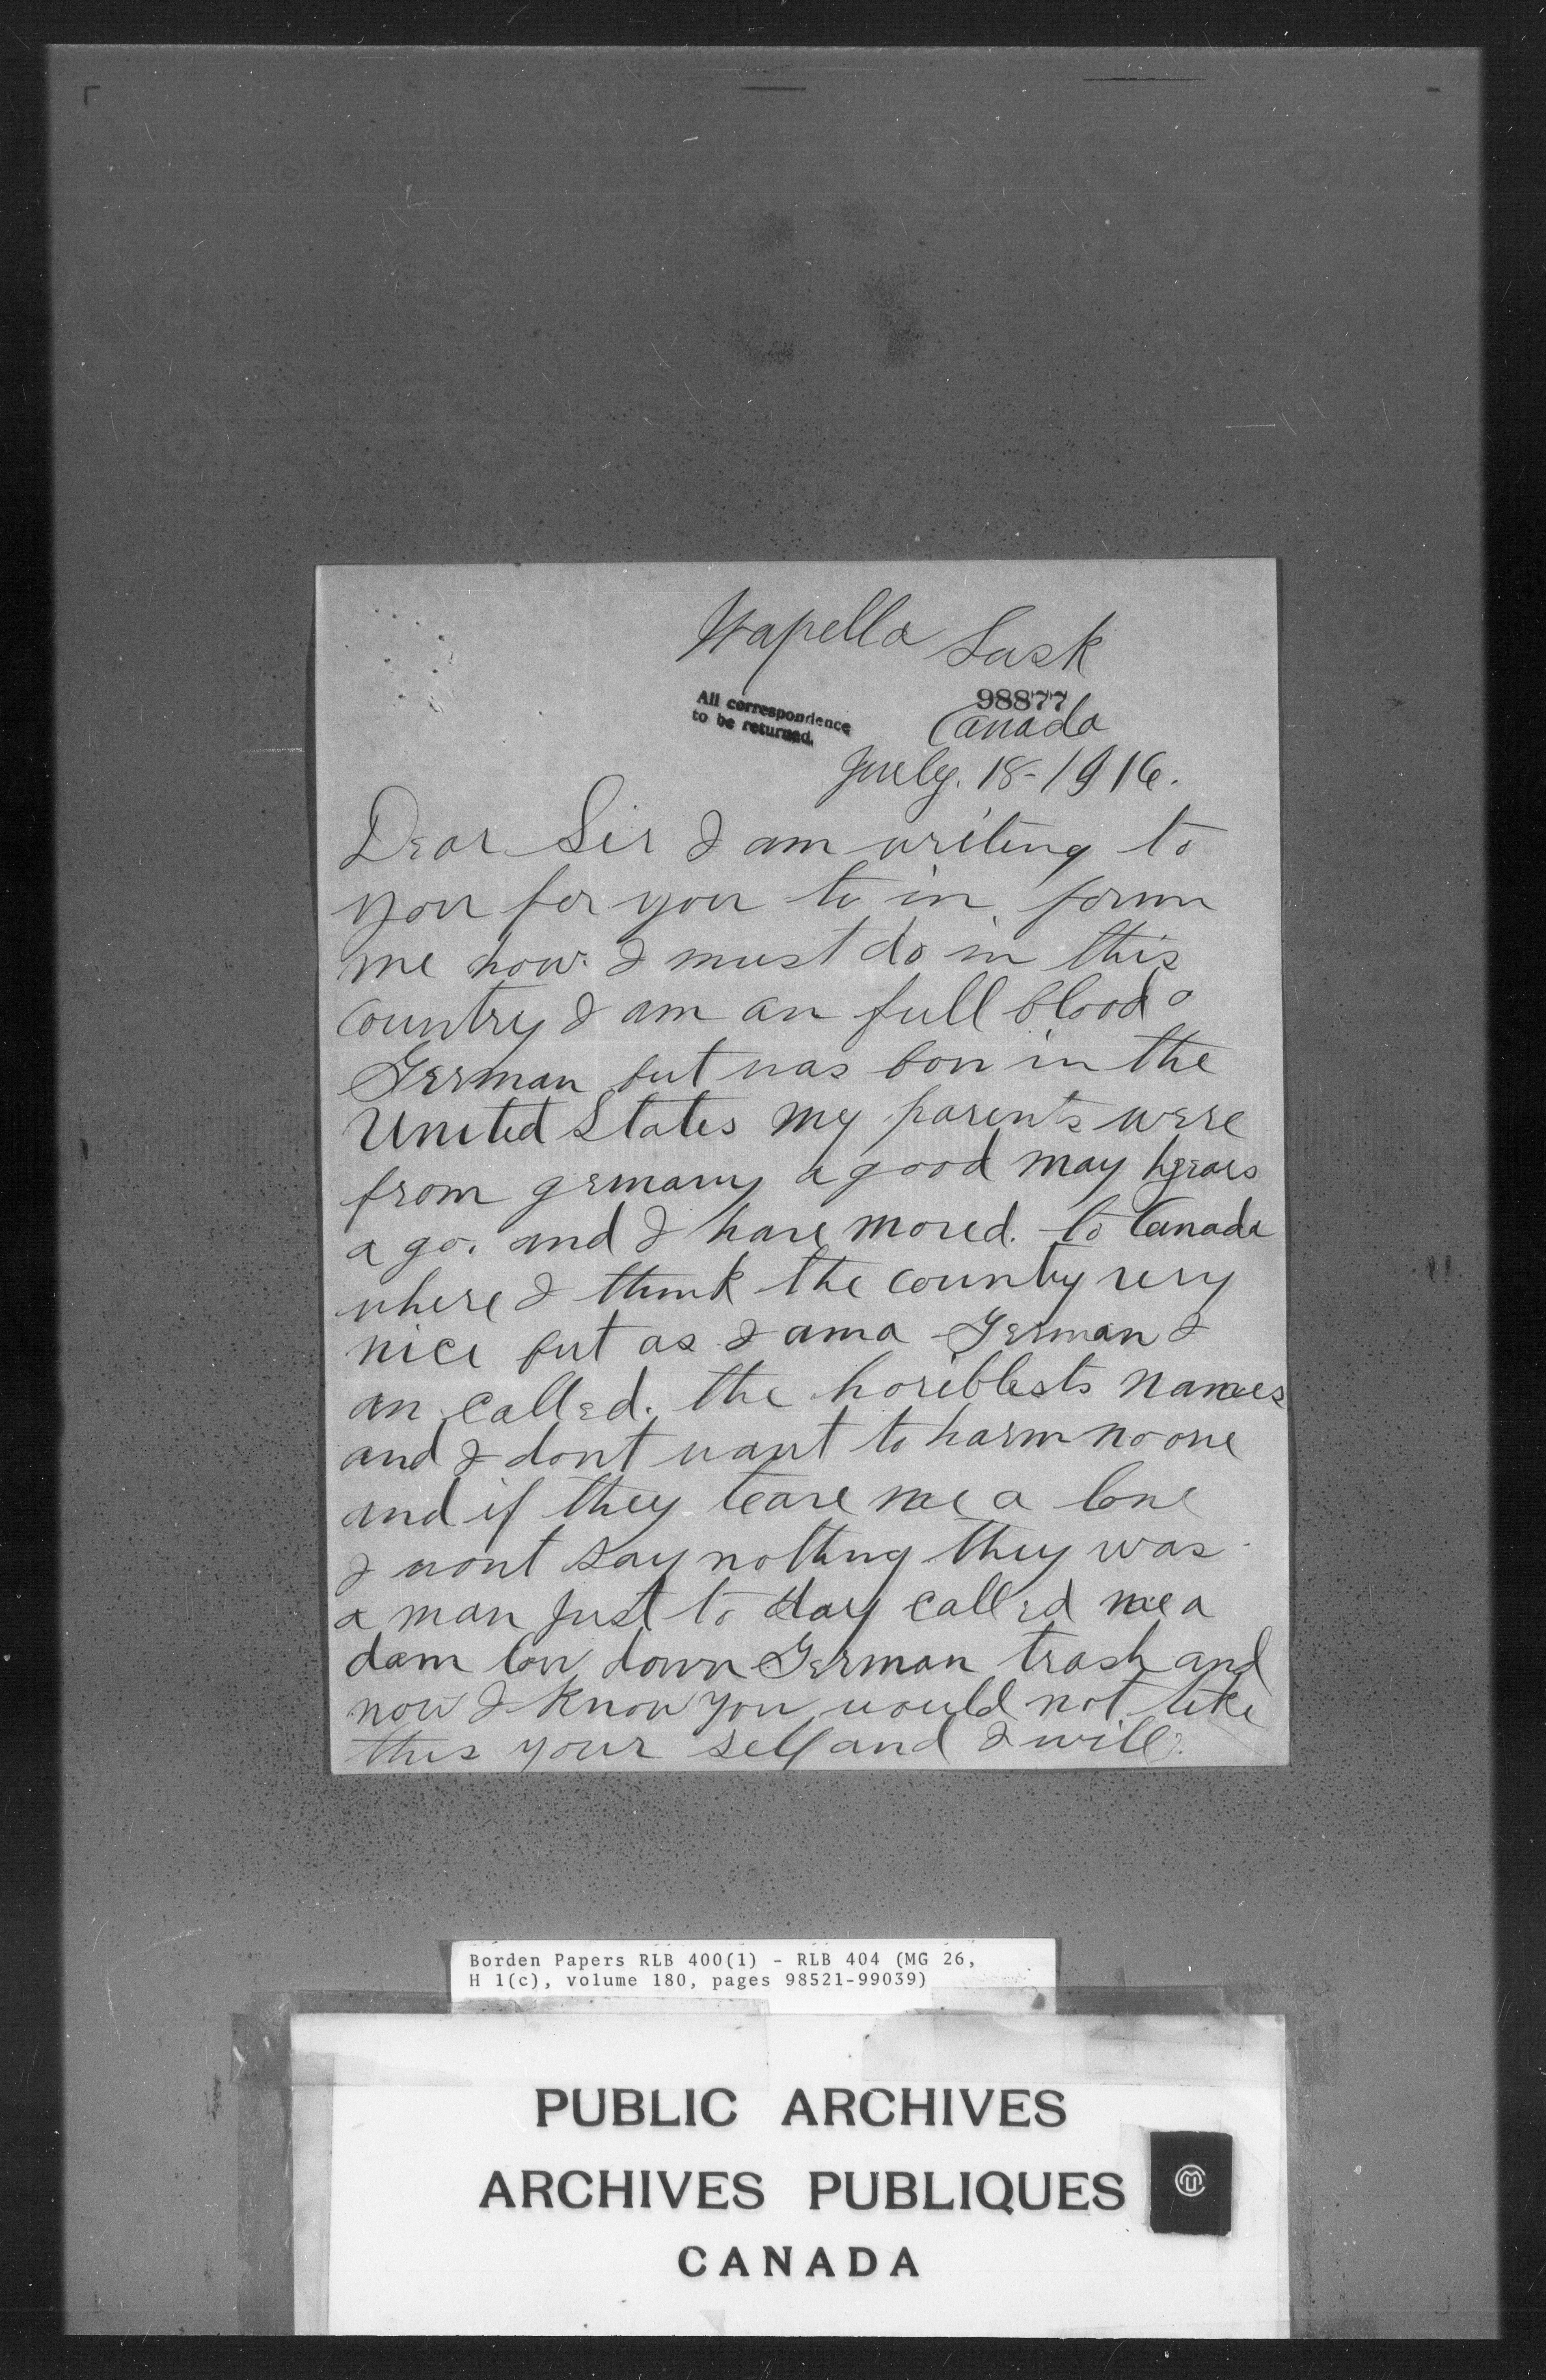 Wapella Sask
98877
All correspondence
to be returned.
Canada
July. 18-1916.
Dear Sir I am writing to
you for you to in form
me how I must do in this
country I am an full blood
German but was bon in the
United States my parents were
from germany a good may years
a go. and I have moved. to Canada
where I think the country very
nice but as I am a German I
am called. the horiblests names
and I dont want to harm no one
and if they leave me a lone
I wont say nothing they was
a man just to day called me a
dam low down German trash and
now I know you would not like
this your self and I will.
Borden Papers RLB 400(1) - RLB 404 (MG 26,
H 1(c), volume 180, pages 98521-99039)
PUBLIC ARCHIVES
ARCHIVES PUBLIQUES
CANADA